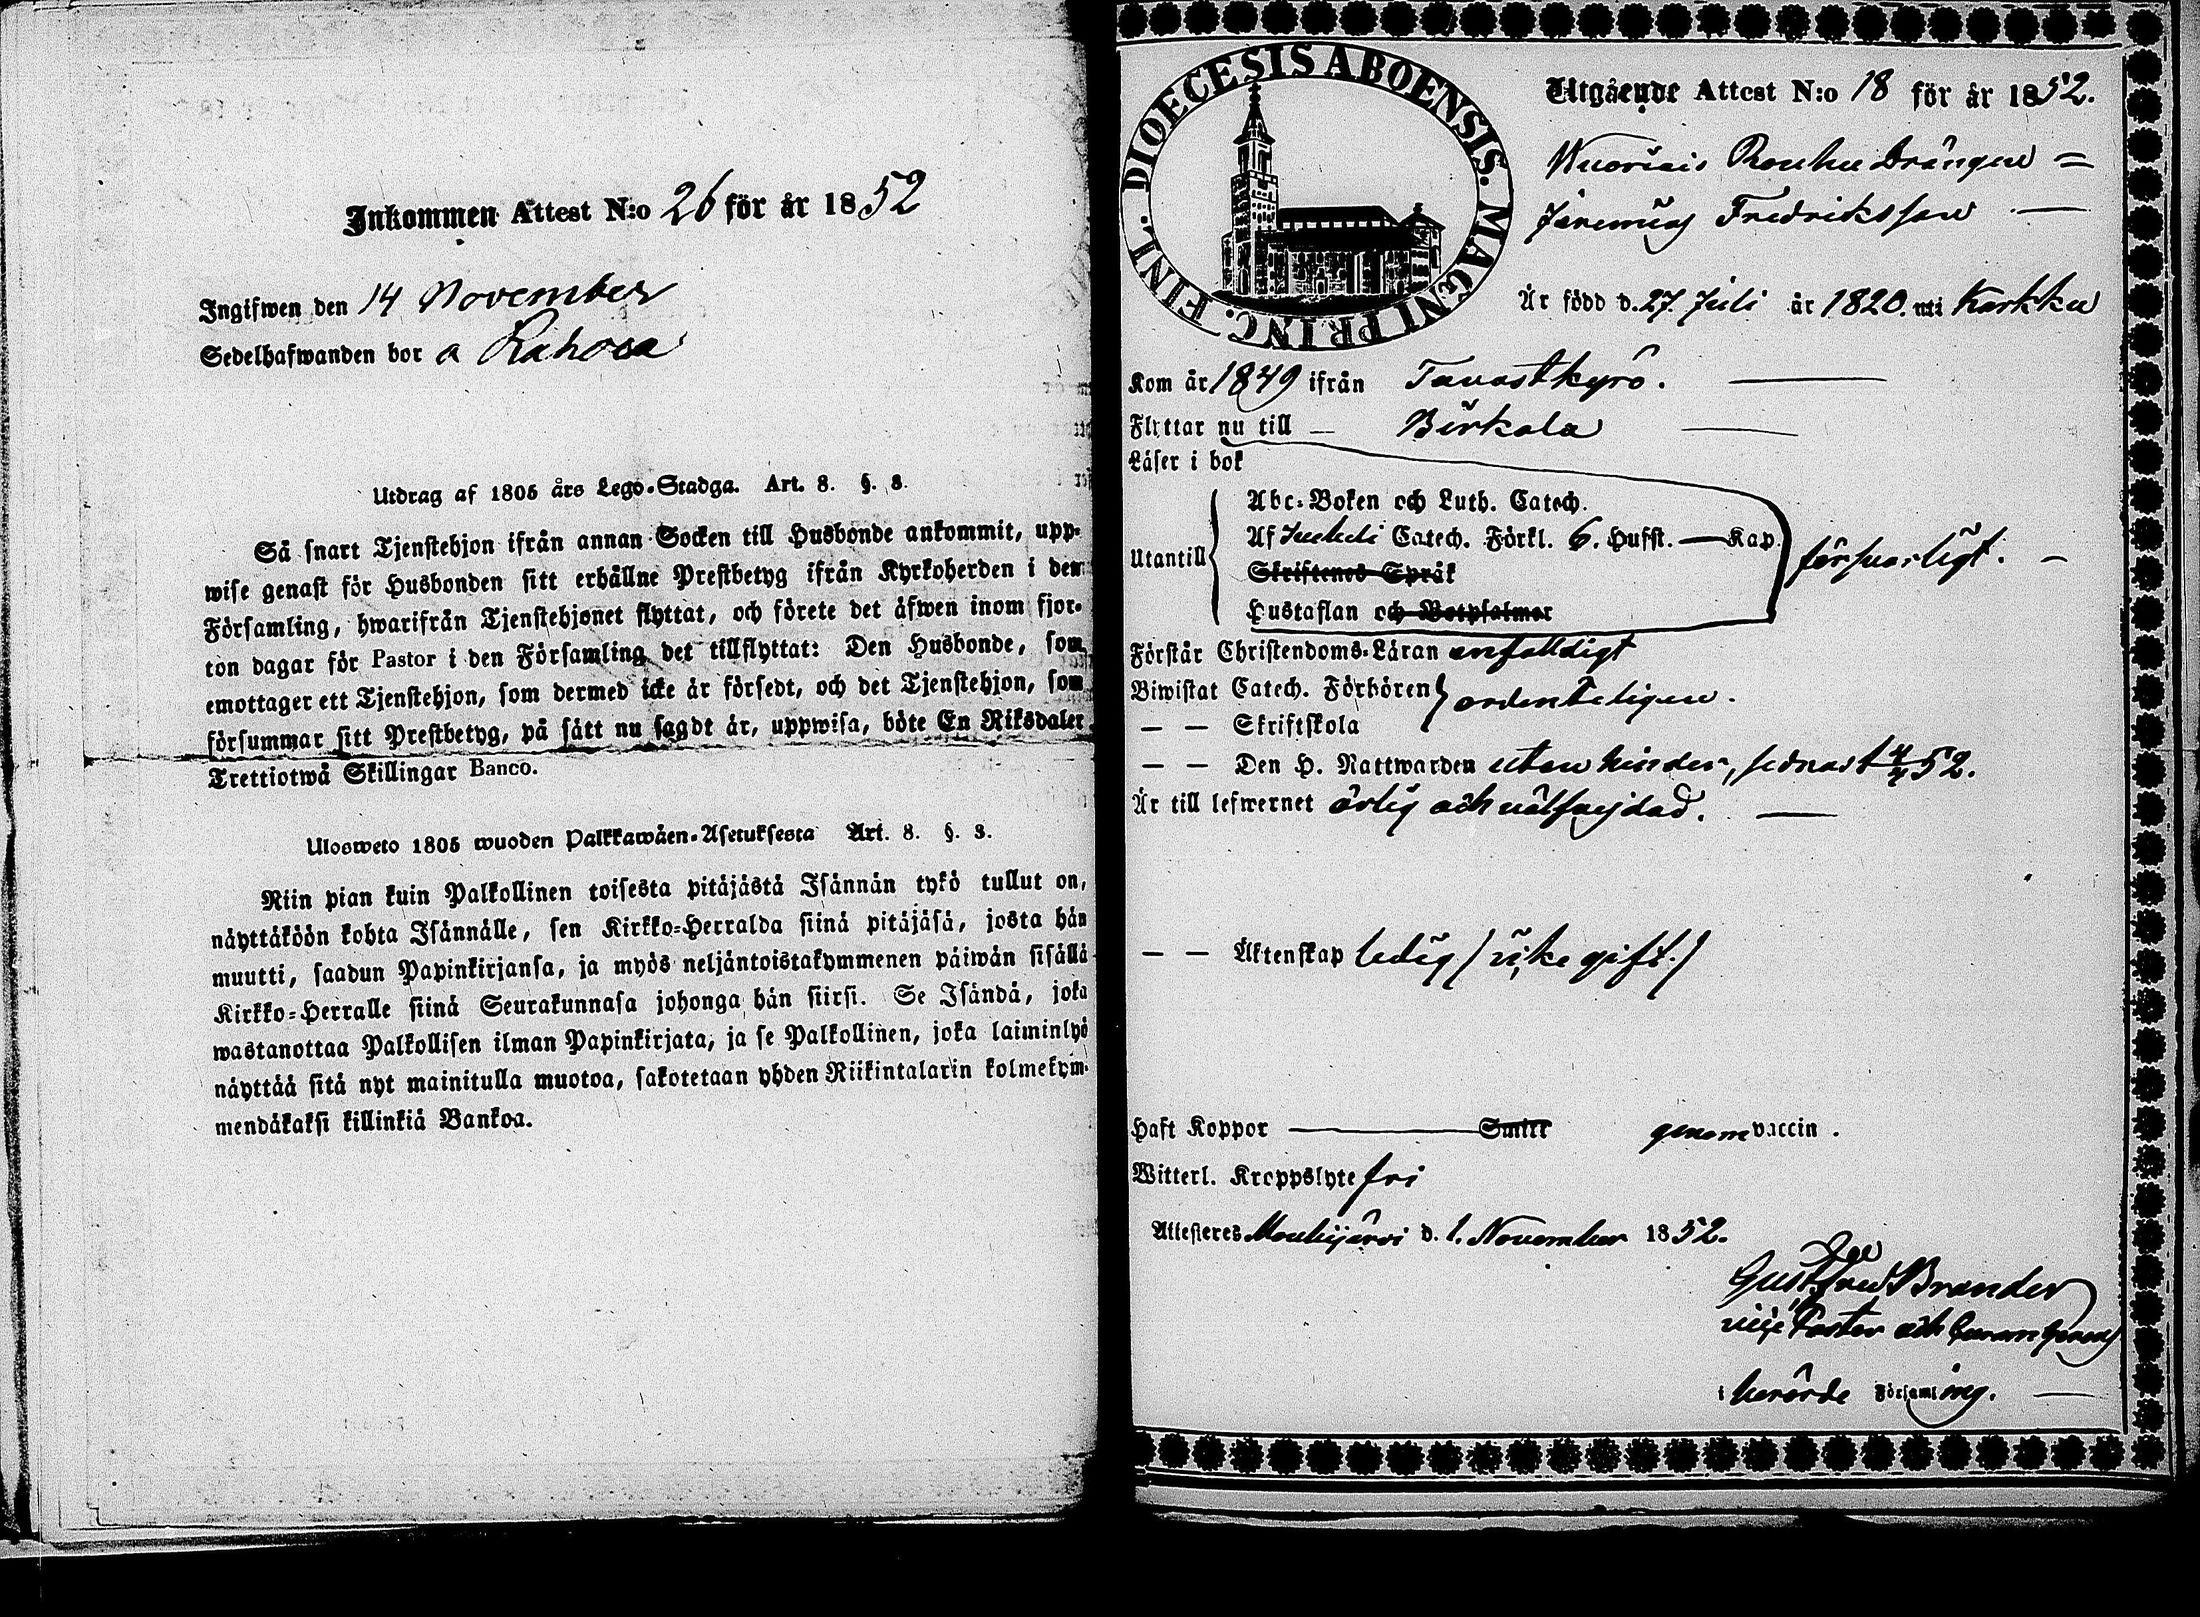 Inkommen Attest N:o 26 för år 1852
Ingifwen den 14 November
Sedelhafwanden bor a Rahola
Utdrag af 1805 års Lego-Stadga. Art. 8. §. 3.
Så snart Tjenstehjon ifrån annan Socken till Husbonde ankommit, upp-
wise genast för Husbonden sitt erhållne Prestbetyg ifrån Kyrkoherden i den
Församling, hwarifrån Tjenstehjonet flyttat, och förete det äfwen inom fjor-
ton dagar för Pastor i den Församling det tillflyttat: Den Husbonde, som
emottager ett Tjenstehjon, som dermed icke är försedt, och det Tjenstehjon, som
försummar sitt Prestbetyg, på sätt nu sagdt är, uppwisa, böte En Riksdaler
Trettiotwå Skillingar Banco.
Ulosweto 1805 wuoden Palkkawäen-Asetuksesta Art. 8. §. 3.
Niin pian kuin Palkollinen toisesta pitäjästä Isännän tykö tullut on,
näyttäköön kohta Isännälle, sen Kirkko-Herralda siinä pitäjäsä, josta hän
muutti, saadun Papinkirjansa, ja myös neljäntoistakymmenen päiwän sisällä
Kirkko-Herralle siinä Seurakunnasa johonga hän siirsi. Se Isändä, joka
wastanottaa Palkollisen ilman Papinkirjata, ja se Palkollinen, joka laiminlyö
näyttää sitä nyt mainitulla muotoa, sakotetaan yhden Riikintalarin kolmekym-
mendäkaksi killinkiä Bankoa.
DIOECESIS ABOENSIS. MAGNI PRINC. FINL.
Utgående Attest N:o 18 för år 1852.
Drängen =
Jeremias Fredriksson
Är född d. 27. Juli år 1820. uti Karkku
Kom år 1849 ifrån Tavastkyrö.
Flyttar nu till Birkala
Läser i bok
Utantill
Abc-Boken och Luth. Catech.
Af Catech. Förkl. 6. Hufst. — Kap
Skriftenes Språk
Hustaflan och Botpsalmer
försvarligt.
Förstår Christendoms-Läran enfaldigt
Biwistat Catech. Förhören
— — Skriftskola
ordenteligen.
— — Den H. Nattwarden utan hinder, sednast 4/4 52.
Är till lefwernet ärlig och välfrejdad.
— — Äktenskap ledig / icke gift. /
Haft Koppor Smitt genom vaccin.
Witterl. Kroppslyte fri
Attesteres Mouhijärvi d. 1. November 1852.
Brander
vice Pastor och
i berörde Församling.